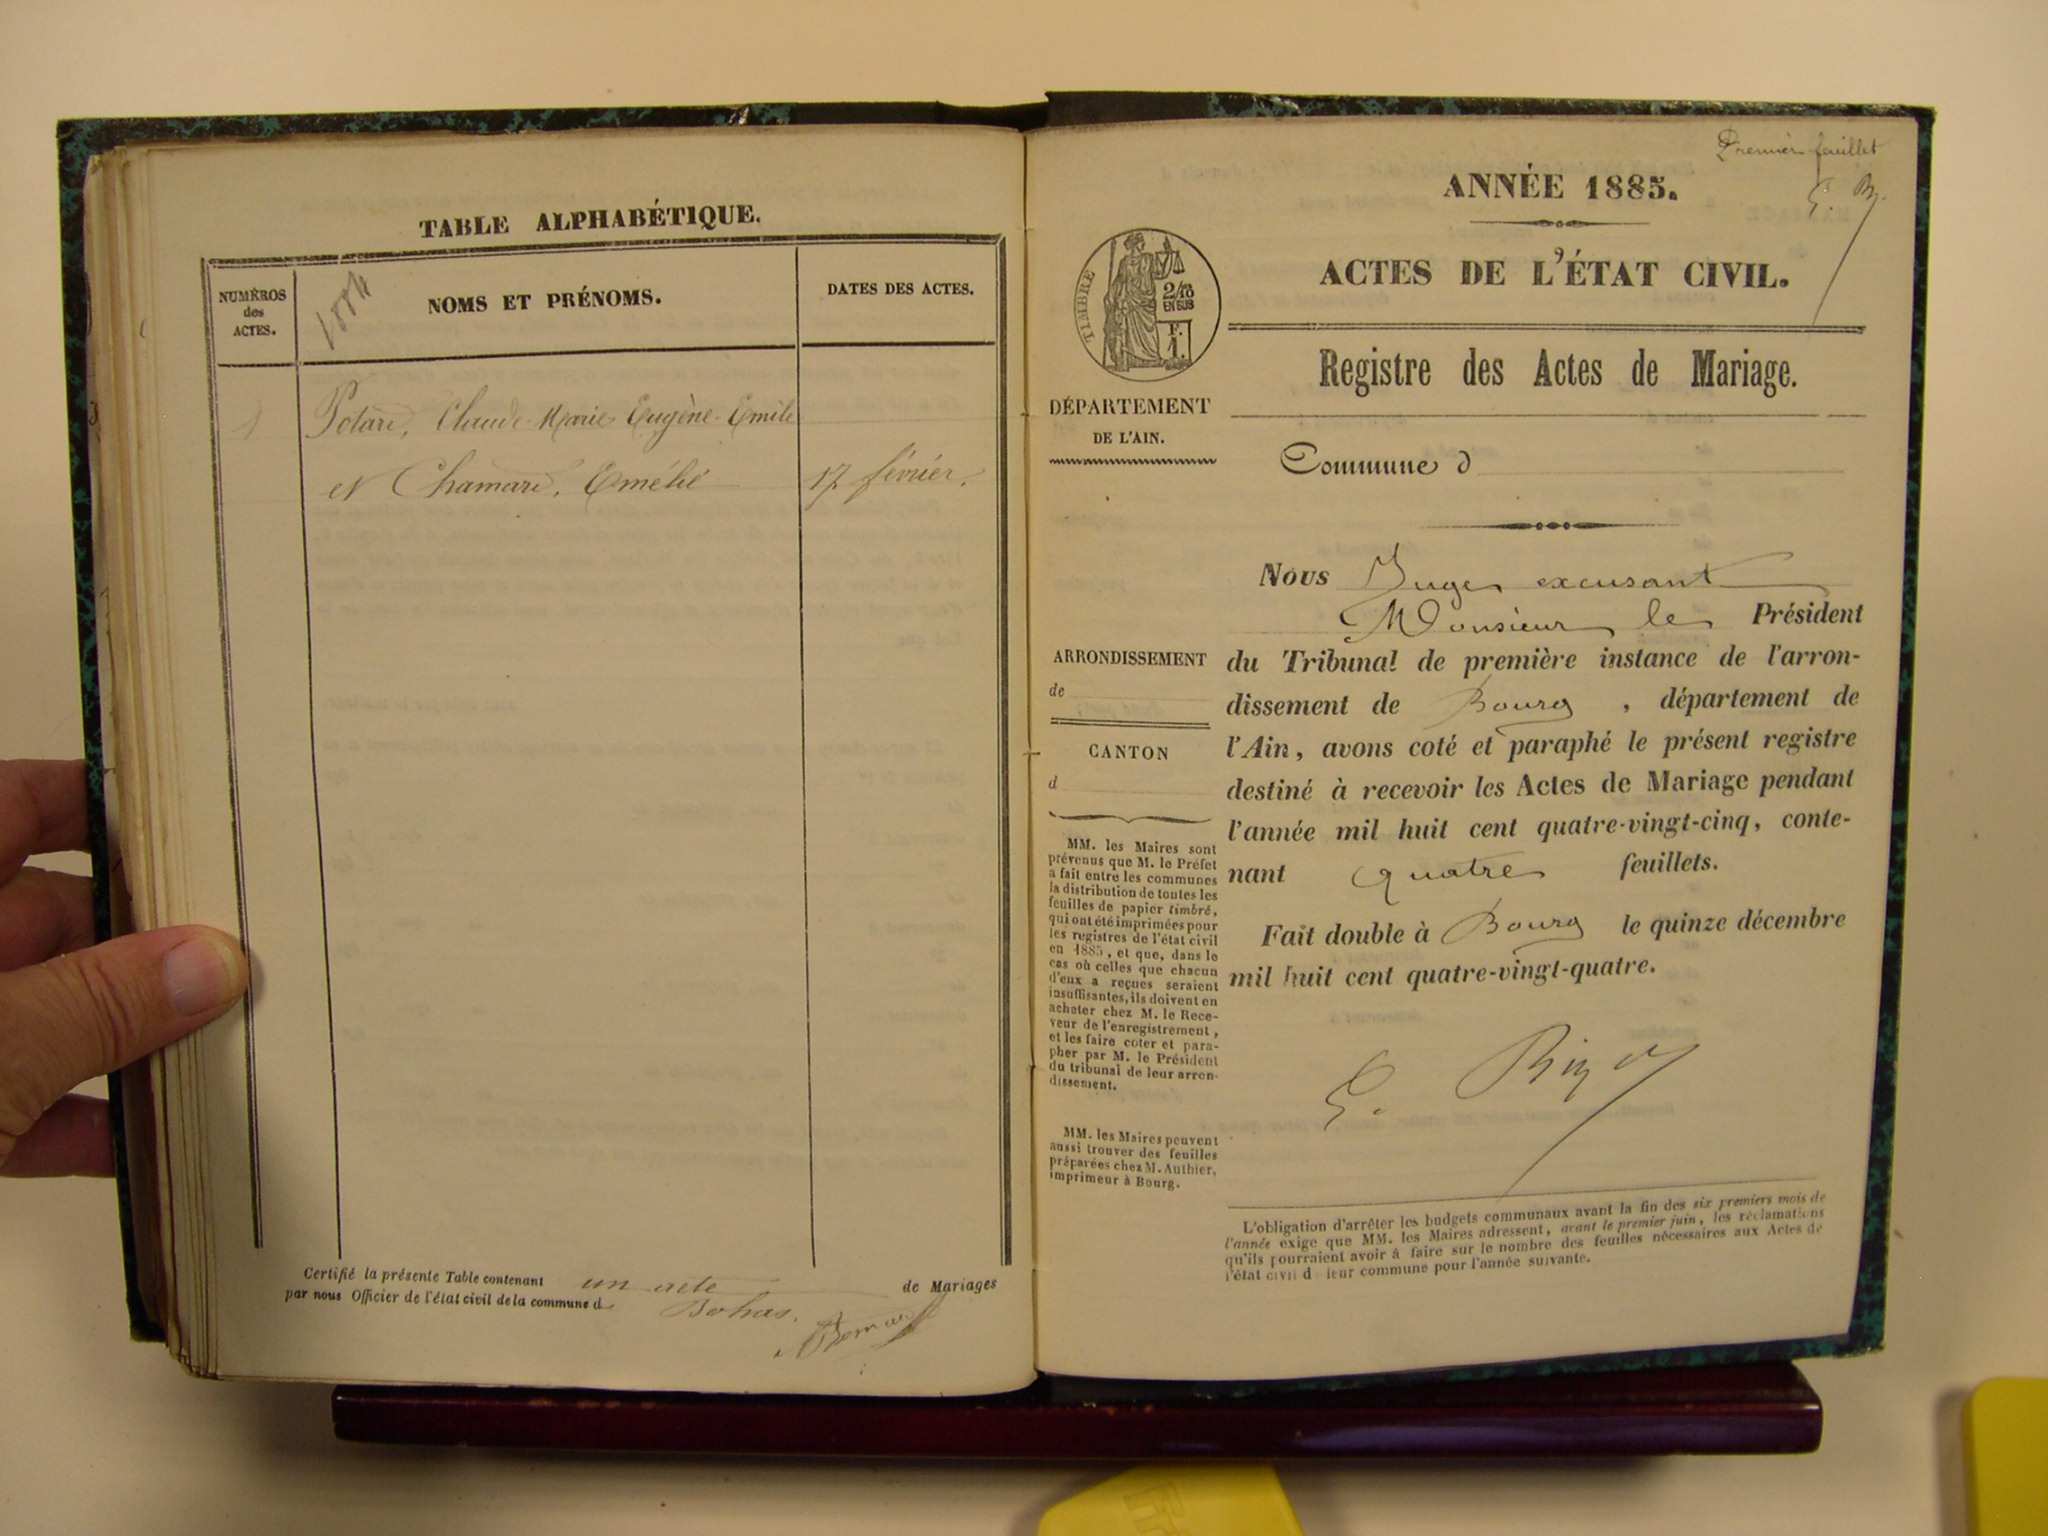 TABLE ALPHABÉTIQUE.
NUMÉROS
des
ACTES.
1884
NOMS ET PRÉNOMS.
DATES DES ACTES.
1
Potard, Claude-Marie-Eugène-Emile
et Chamard, Emélie
17 février.
Certifié la présente Table contenant un acte de Mariages
par nous Officier de l'état civil de la commune de Bohas.
Premier feuillet
E. B.
ANNÉE 1885.
ACTES DE L'ÉTAT CIVIL.
TIMBRE
2/10
EN SUS
F.
1.
Registre des Actes de Mariage.
DÉPARTEMENT
DE L'AIN.
Commune d
Nous Juge excusant
Monsieur le Président
du Tribunal de première instance de l'arron-
dissement de Bourg, département de
l'Ain, avons coté et paraphé le présent registre
destiné à recevoir les Actes de Mariage pendant
l'année mil huit cent quatre-vingt-cinq, conte-
nant quatre feuillets.
Fait double à Bourg le quinze décembre
mil huit cent quatre-vingt-quatre.
E.
ARRONDISSEMENT
de
CANTON
d
MM. les Maires sont
prévenus que M. le Préfet
a fait entre les communes
la distribution de toutes les
feuilles de papier timbré,
qui ont été imprimées pour
les registres de l'état civil
en 1885, et que, dans le
cas où celles que chacun
d'eux a reçues seraient
insuffisantes, ils doivent en
acheter chez M. le Rece-
veur de l'enregistrement,
et les faire coter et para-
pher par M. le Président
du tribunal de leur arron-
dissement.
MM. les Maires peuvent
aussi trouver des feuilles
préparées chez M. Authier,
imprimeur à Bourg.
L'obligation d'arrêter les budgets communaux avant la fin des six premiers mois de
l'année exige que MM. les Maires adressent, avant le premier juin, les réclamations
qu'ils pourraient avoir à faire sur le nombre des feuilles nécessaires aux Actes de
l'état civil d leur commune pour l'année suivante.